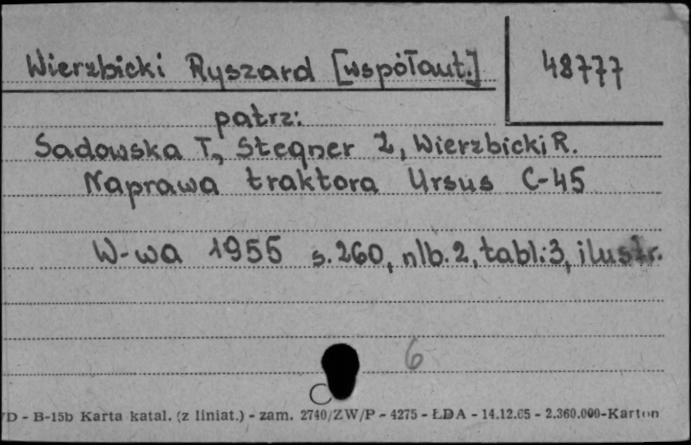 Wierzbicki Ryszard [współaut.]
48777
patrz:
Sadowska T., Stegner Z, Wierzbicki R.
Naprawa traktora Ursus C-45
W-wa 1955 s. 260, nlb. 2, tabl. 3, ilustr.
6
D - B-15b Karta katal. (z liniat.) - zam. 2740/ZW/P - 4275 - ŁDA - 14.12.65 - 2.360.000-Karton